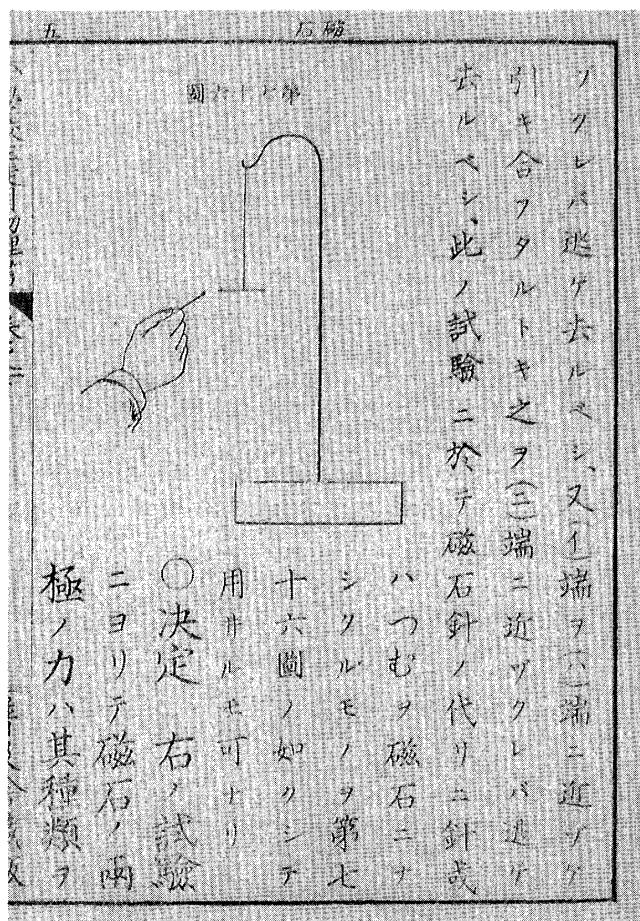 磁石
五
第七十六圖
ヅクレバ逃ゲ去ルベシ、又(イ)端ヲ(ハ)端ニ近ヅケ
引キ合フタルトキ之ヲ(ニ)端ニ近ヅクレバ逃ゲ
去ルベシ、此ノ試驗ニ於テ磁石針ノ代リニ針或
ハつむヲ磁石ニナ
シタルモノヲ第七
十六圖ノ如クシテ
用井ルモ可ナリ
○決定 右ノ試驗
ニヨリテ磁石ノ兩
極ノ力ハ其種類ヲ